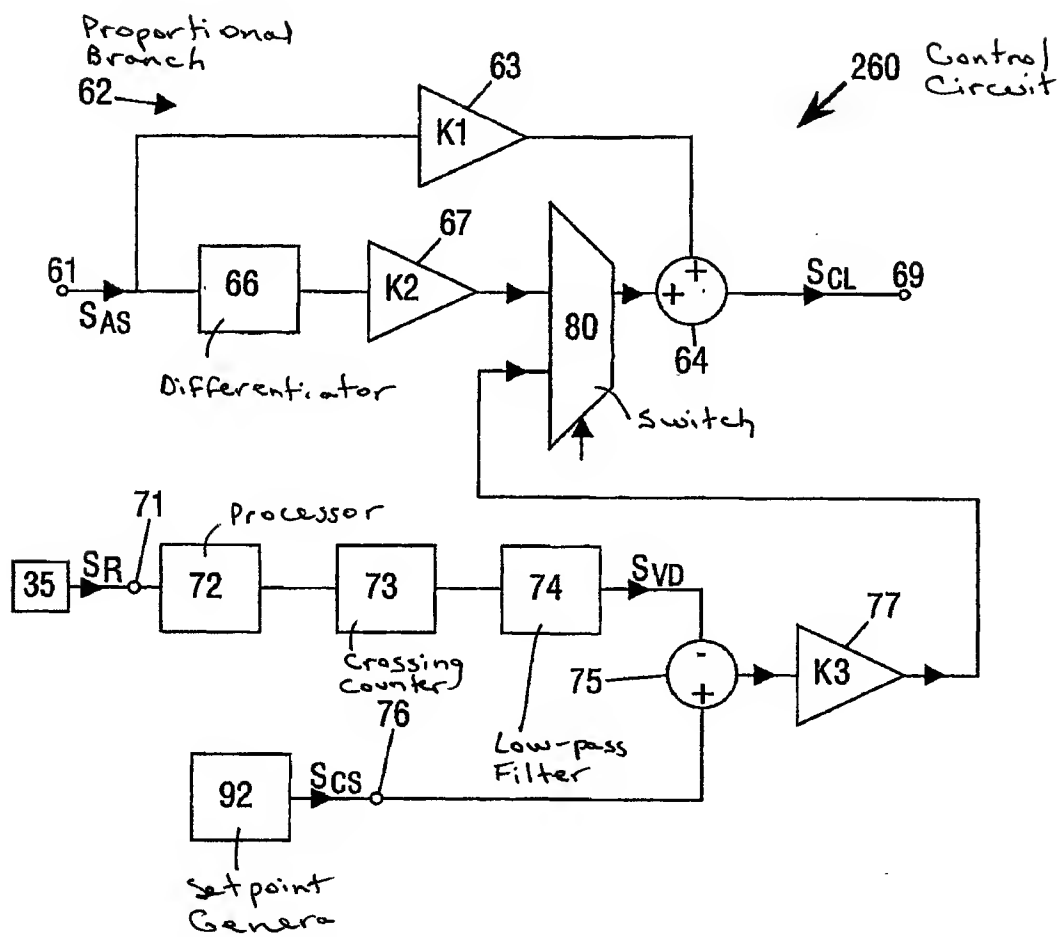 Proportional
Branch
62
63
K1
260
Control
Circuit
61
SAS
66
Differentiator
67
K2
80
Switch
64
SCL
69
71
Processor
35
SR
72
73
Crossing
Counter
74
Low-pass
Filter
SVD
75
77
K3
76
92
SCS
Setpoint
Genera